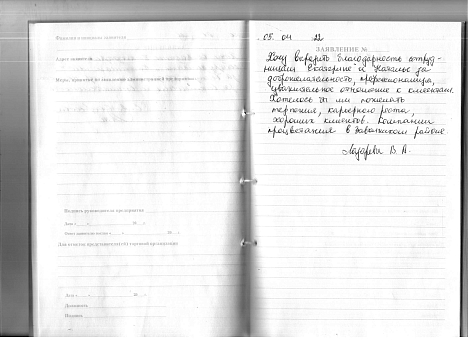 Фамилия и инициалы заявителя
Адрес заявителя
Меры, принятые по заявлению администрацией предприятия:
Подпись руководителя предприятия
Дата « » 20 г.
Для отметок представителей торговой организации
Дата « » 20 г.
Должность
Подпись
05. 04 22
ЗАЯВЛЕНИЕ №
Хочу выразить благодарность сотруд-
никам Екатерине и Наталье за
доброжелательность, профессионализм,
уважительное отношение к клиентам.
Хотелось бы им пожелать
терпения, карьерного роста,
хороших клиентов. Компании
процветания в Заволжском районе.
Лазарева В. А.